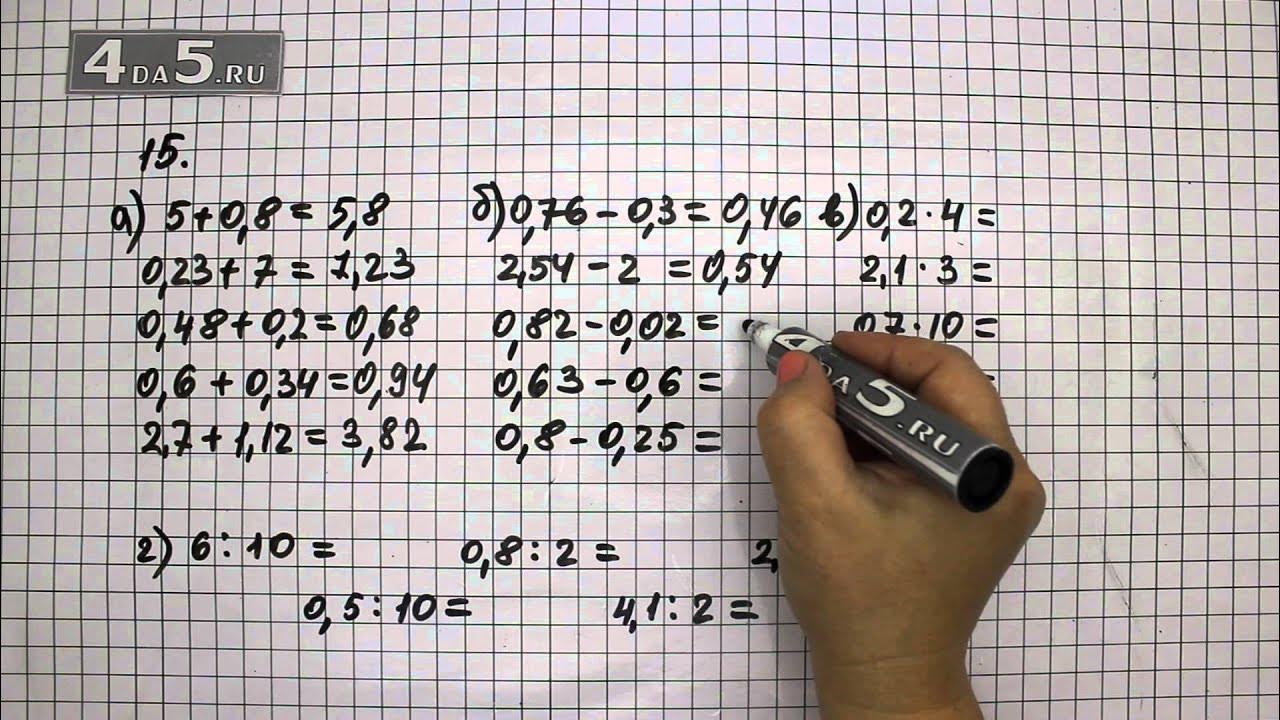 4DA5.RU
15.
а) 5+0,8 = 5,8 б) 0,76 - 0,3 = 0,46 в) 0,2 · 4 =
0,23 + 7 = 7,23 2,54 - 2 = 0,54 2,1 · 3 =
0,48 + 0,2 = 0,68 0,82 - 0,02 = 0,7 · 10 =
0,6 + 0,34 = 0,94 0,63 - 0,6 = =
2,7 + 1,12 = 3,82 0,8 - 0,25 =
4DA5.RU
г) 6 : 10 = 0,8 : 2 = 2,
0,5 : 10 = 4,1 : 2 =